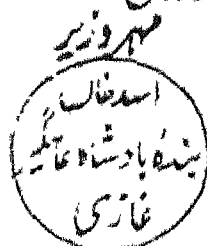 مہر وزیر
اسد خاں
بندہ بادشاہ عالمگیر
غازی